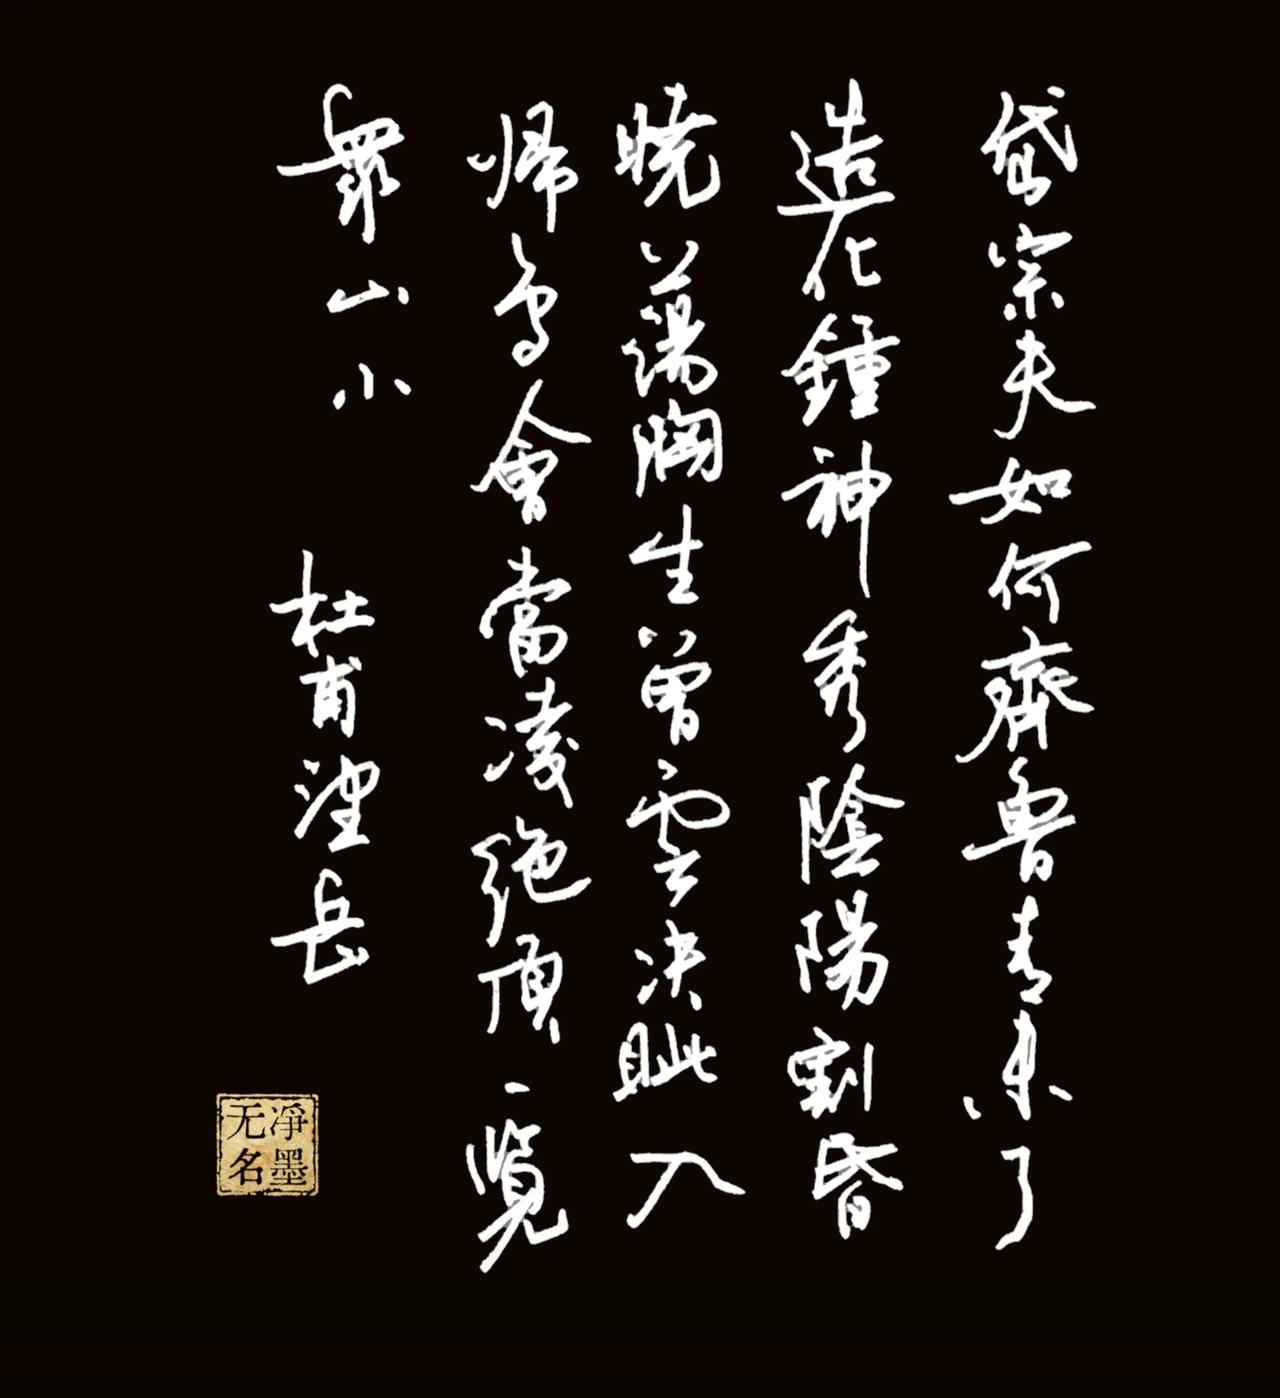 岱宗夫如何齊魯青未了
造化鍾神秀陰陽割昏
暁蕩胸生曾雲决眦入
帰鸟會當凌絶頂一覧
衆山小
杜甫望岳
凈墨
无名